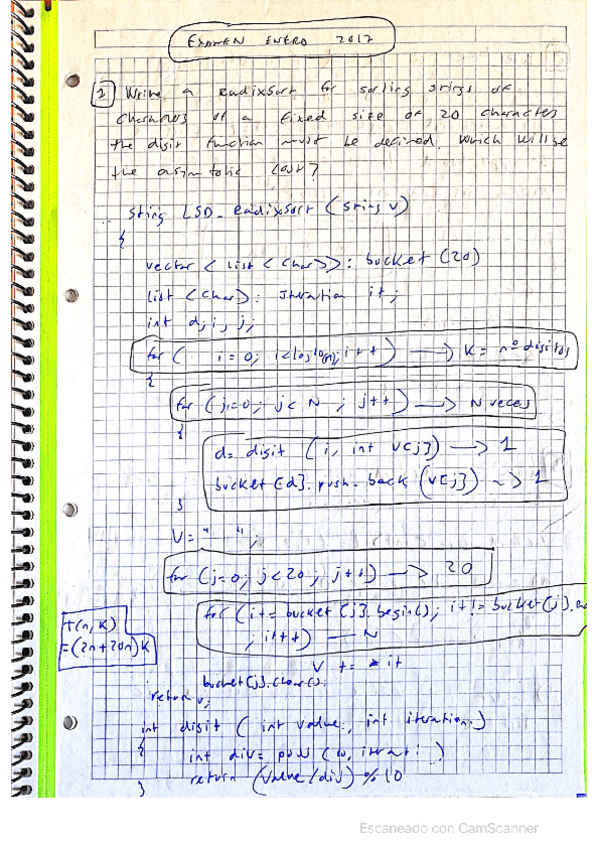 EXAMEN ENERO 2017
1 Write a RadixSort for sorting strings of
characters of a fixed size of 20 characters
the digit function must be defined. Which will be
the asymtotic cost?
string LSD_RadixSort (string v)
{
vector < list < char >> : bucket (20)
list < char > : Iteration it;
int d, i, j;
for ( i = 0; i < log10(n); i++ ) → K = nº digitos
{
for (j=0; j < N ; j++ ) → N veces
{
d = digit (i, int v[j]) → 1
bucket [d]. push_back (v[j]) → 1
}
V = " ";
for (j=0; j<20; j++) → 20
for (it = bucket [j].begin(); it != bucket (j).
; it++) — N
T(n, K)
= (2n+20n)K
V += * it
bucket [j].clear();
return v;
int digit ( int value, int iteration )
{
int div = pow (10, iterat. )
return (value / div) % 10
}
Escaneado con CamScanner